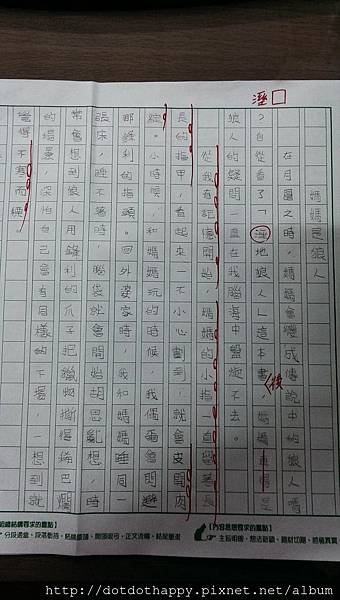 溼
媽媽是狼人
在月圓之時,媽媽會變成傳說中的狼人嗎
?自從看了「溼地狼人」這本書後,媽媽是
狼人的疑問一直在我腦海中盤旋不去。
從我有記憶開始,媽媽的小指一直留著長
長的指甲,看起來一不小心劃到就會皮開肉
綻。小時候,和媽媽玩的時候,我偶爾會閃避
那鋒利的指頭。回外婆家時,我和媽媽睡同一
張床,睡不著時,腦袋就會開始胡思亂想,時
常會想到狼人用鋒利的爪子把獵物撕得稀巴爛
的場景,深怕自己會有同樣的下場,一想到就
覺得不寒而慄
【內容思想要求的重點】
組織結構要求的重點】
http://dotdothappy.pixnet.net/album